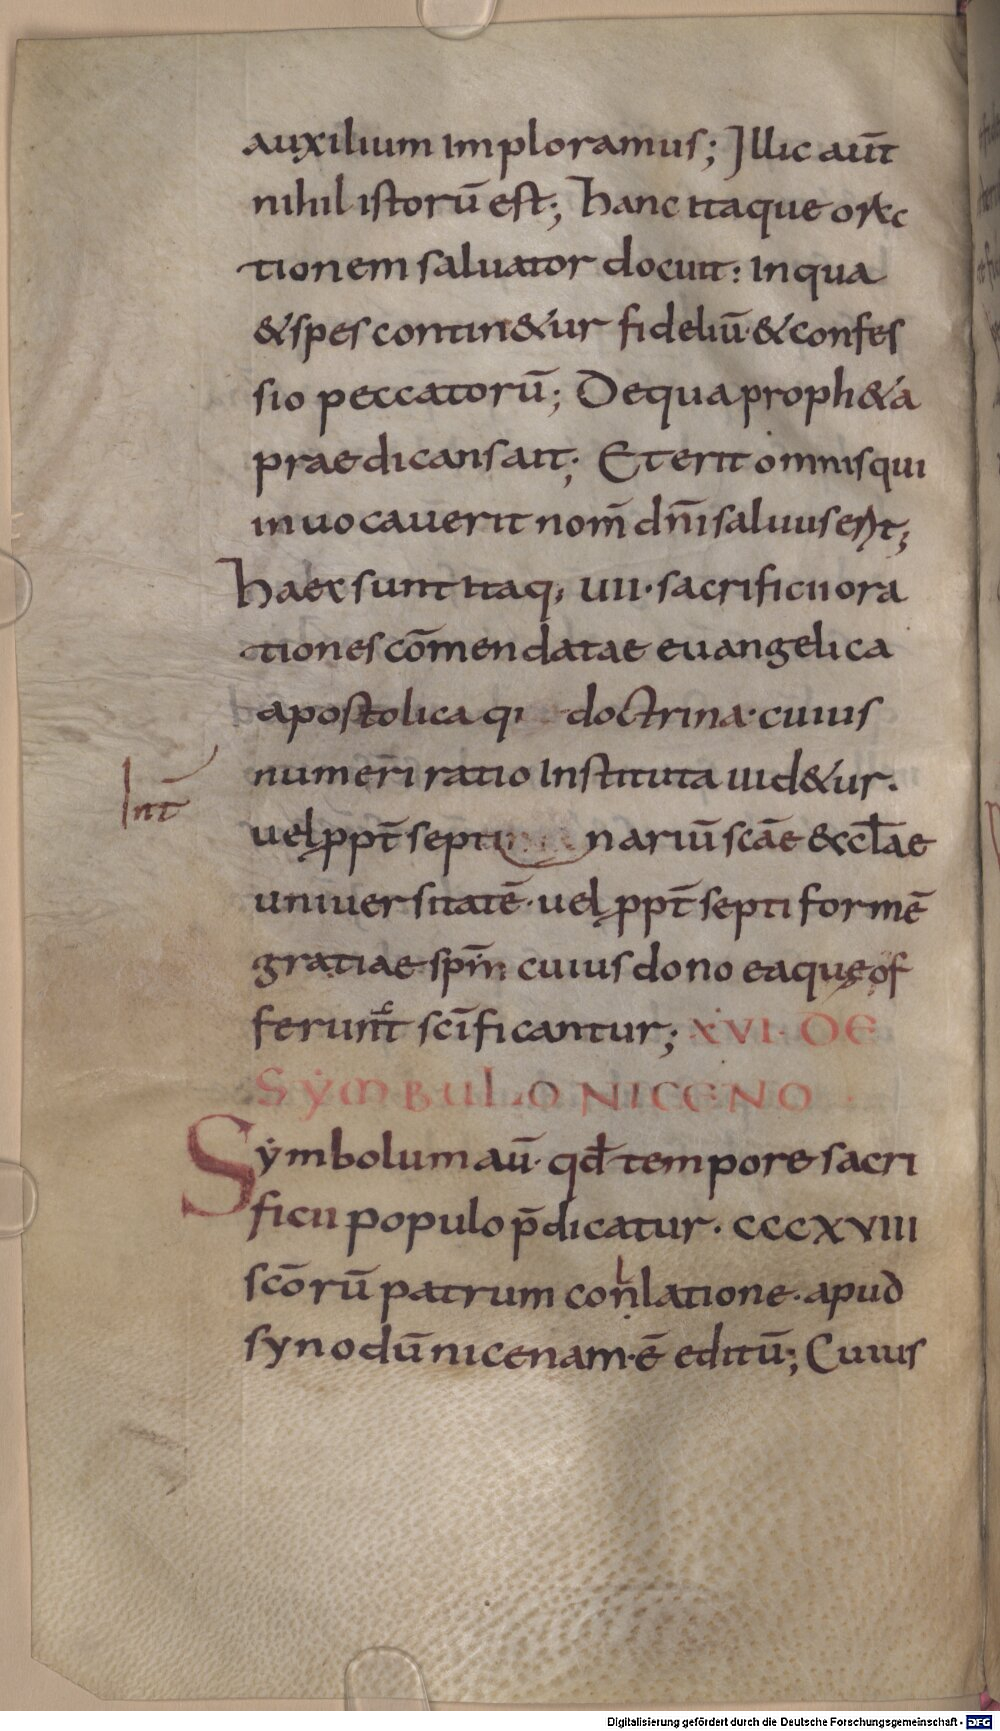 auxilium imploramus; Illic aut̄
nihil istorū est; hanc itaque orac
tionem saluator docuit: In qua
& spes contin&ur fideliū· & confes
sio peccatorū; De qua proph&a
praedicans ait; Et erit omnis qui
inuocauerit nom̄ dn̄i saluus erit;
haec sunt itaq; uii· sacrificii ora
tiones cōmendatae euangelica
apostolica q; doctrina· cuius
numeri ratio Instituta uid&ur·
Int̄
uel ppt̄ septinariū scāe & ccl̄ae
uniuersitatē· uel ppt̄ septiformē
gratiae spm̄ cuius dono ea que of
ferunt̄ scīficantur; XVI· DE
SYMBULO NICENO
Symbolum aū· qd̄ tempore sacri
ficii populo p̄dicatur· CCCXVIII
scōrū patrum conlatione· apud
l
synodū nicenam· ē editū; Cuius
Digitalisierung gefördert durch die Deutsche Forschungsgemeinschaft - DFG